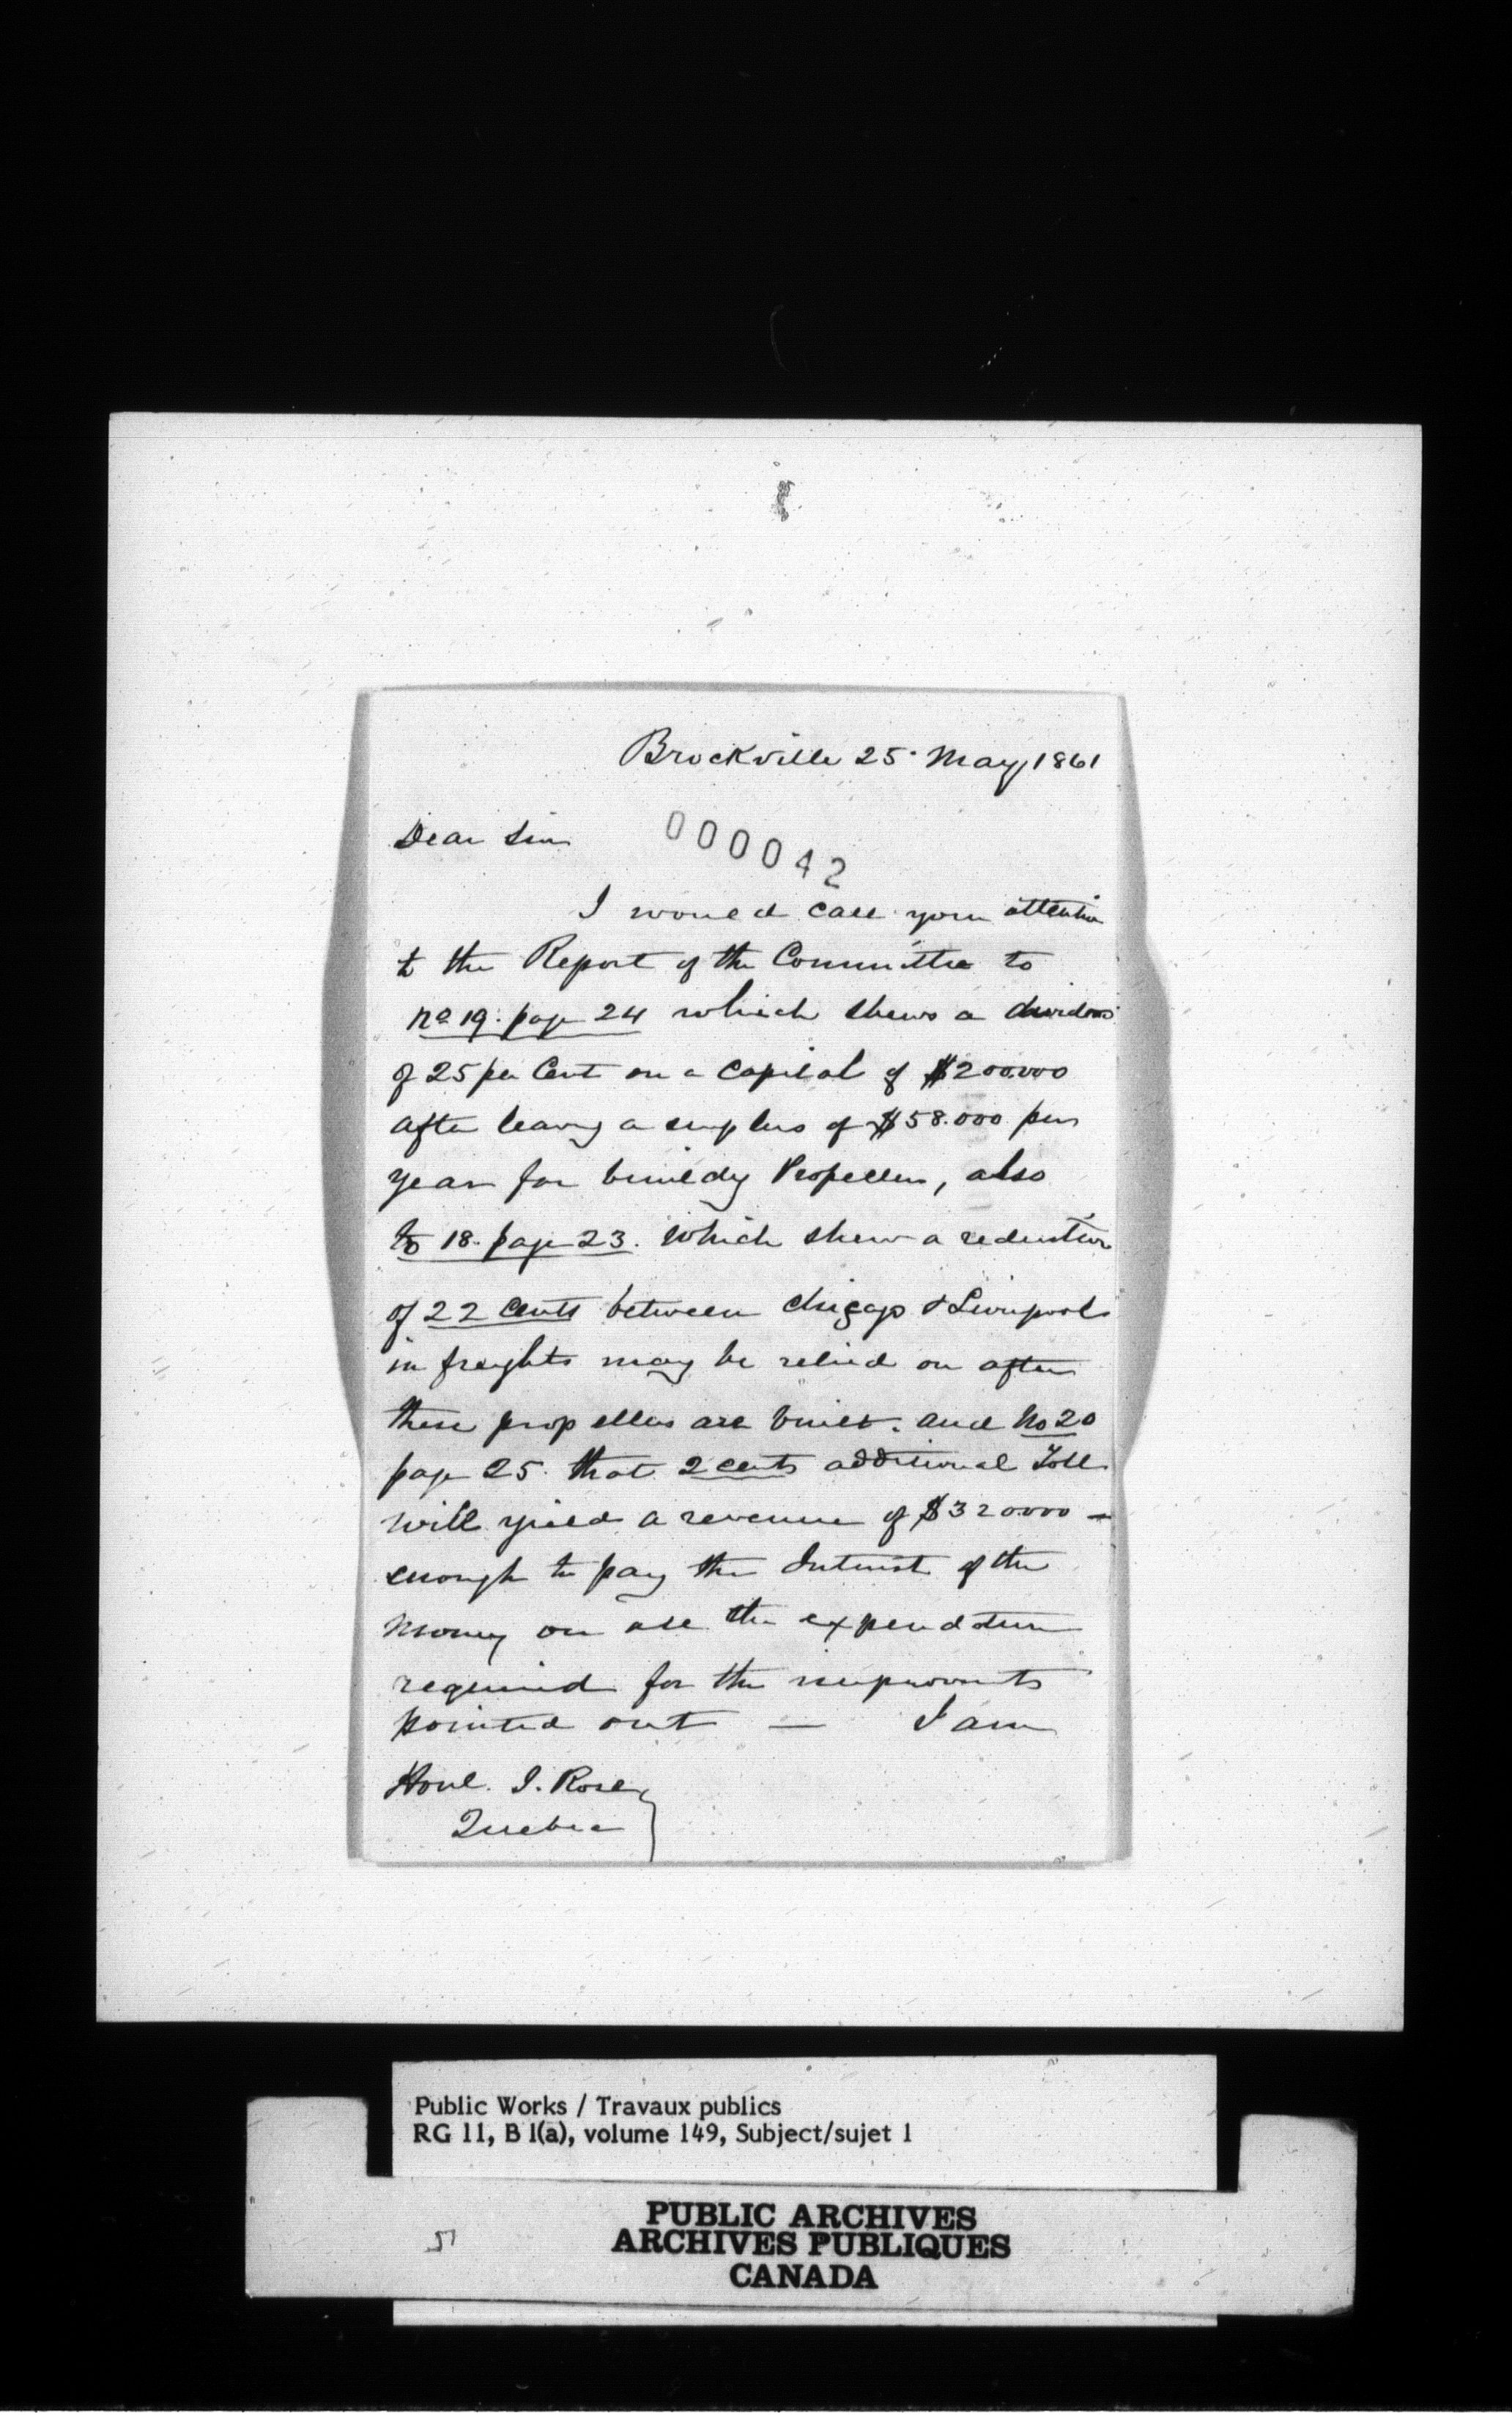 Brockville 25 May 1861
Dear Sir
000042
I would call your attention
to the Report of the Committee to
No 19. page 24 which shews a dividend
of 25 per Cent on a Capital of $200.000
after leavg a surplus of $58.000 per
year for buildg Propellers, also
to 18. page 23. which shew a reduction
of 22 Cents between Chicago & Liverpool
in freights may be relied on after
these propellers are built. and No 20
page 25. that 2 cents additional Toll
will yield a revenue of $320.000 —
enough to pay the Interest of the
money on all the expenditure
required for the improvements
pointed out — I am
Honl. J. Rose
Quebec
Public Works / Travaux publics
RG 11, B 1(a), volume 149, Subject/sujet 1
51
PUBLIC ARCHIVES
ARCHIVES PUBLIQUES
CANADA